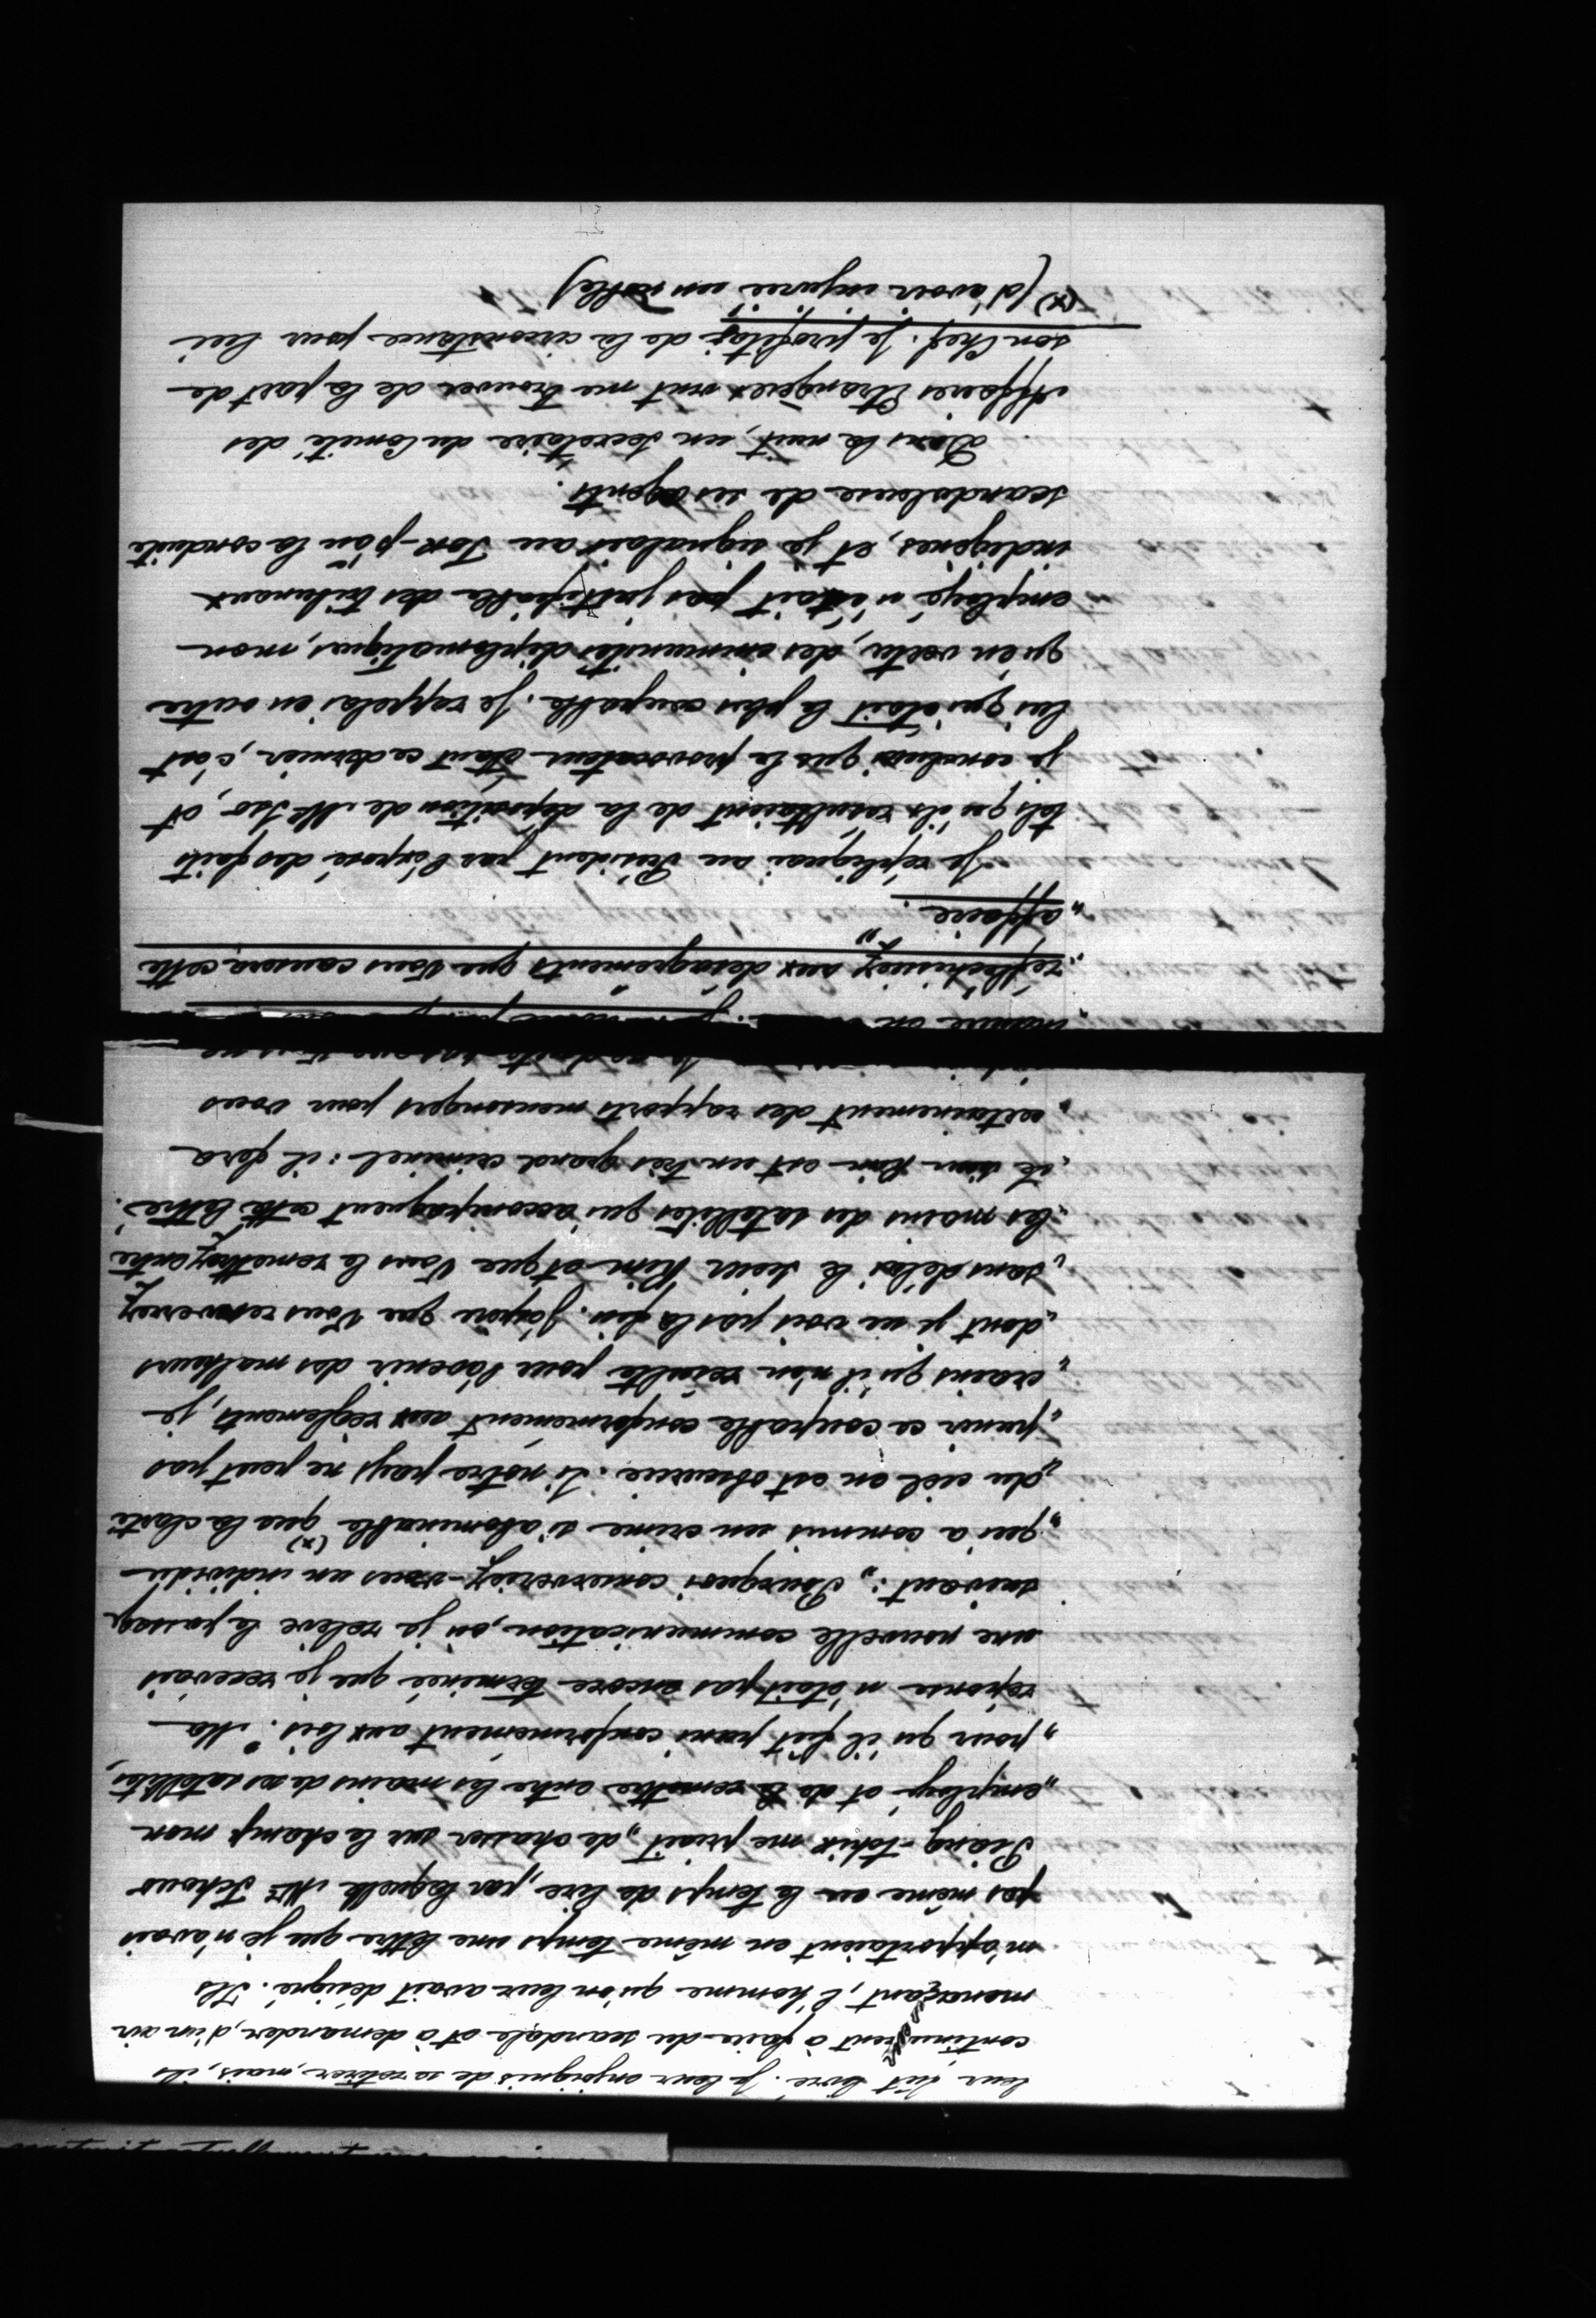 leur fût livré. Je leur enjoignis de se retirer, mais, ils
continuèrent à faire du scandale et à demander, d'un air
menaçant, l'homme qu'on leur avait désigné. Ils
m'apportaient en même temps une lettre que je n'avais
pas même eu le temps de lire, par laquelle Mr Tchouo
Piang-tchik me priait, "de chasser sur le champ mon
"employé et de le remettre entre les mains de ses satellites,
"pour qu'il fût puni conformément aux lois." Ma
réponse n'était pas encore terminée que je recevais
une nouvelle communication, où je relève le passage
suivant: "Pourquoi conserveriez-vous un individu
"qui a commis un crime si abominable (x) que la clarté
"du ciel en est obscurcie. Si notre pays ne peut pas
"punir ce coupable conformément aux règlements, je
"crains qu'il n'en résulte pour l'avenir des malheurs
"dont je ne vois pas la fin. J'espère que Vous renverrez
"sans délai le sieur Kim et que Vous le remettrez entre
"les mains des satellites qui accompagnent cette lettre.
"Ce Kim est un très grand criminel: il fera
"certainement des rapports mensongers pour vous
"réfléchissiez aux désagréments que Vous causera cette
"affaire."
Je répliquai au Président par l'exposé des faits
tels qu'ils résultaient de la déposition de Mr Iao, et
je conclus que le provocateur étant ce dernier, c'est
lui qui était le plus coupable. Je rappelai en outre
qu'en vertu, des immunités diplomatiques, mon
employé n'était pas justiciable des tribunaux
indigènes, et je signalais au Tok-pan la conduite
scandaleuse de ses agents.
Dans la nuit, un Secrétaire du Comité des
Affaires Etrangères vint me trouver de la part de
son Chef. Je profitai de la circonstance pour lui
(x) (d'avoir injurié un noble)